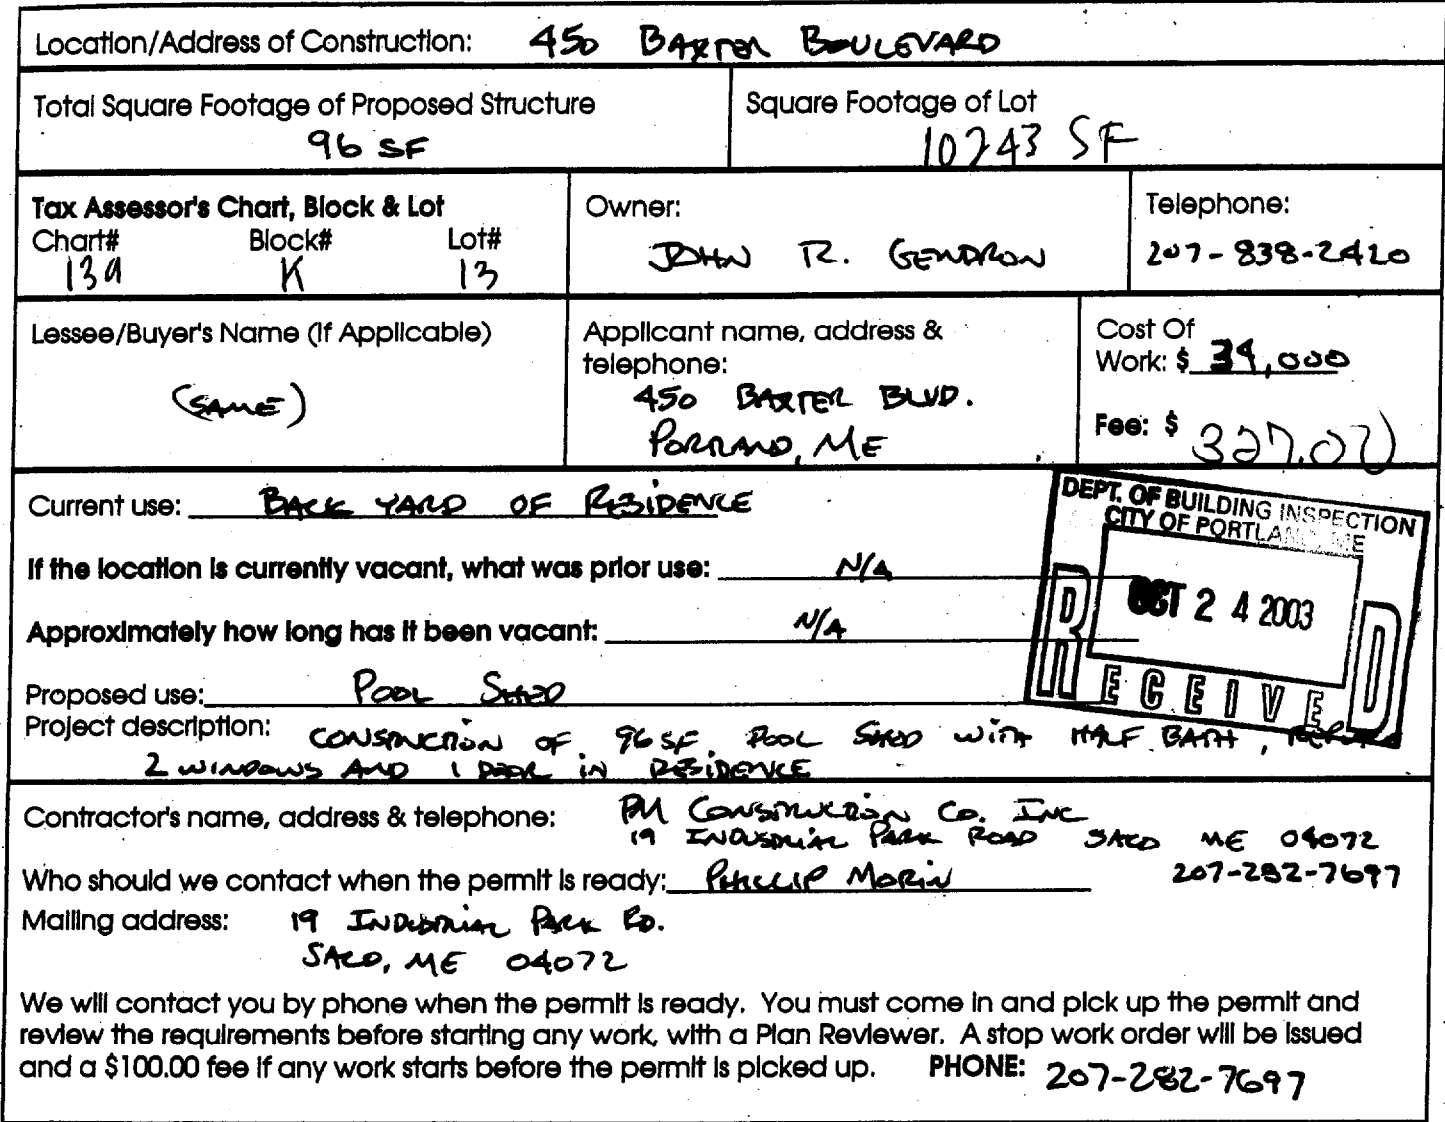 Location/Address of Construction: 450 BAXTER BOULEVARD
Total Square Footage of Proposed Structure
96 SF
Square Footage of Lot
10243 SF
Tax Assessor's Chart, Block & Lot
Chart# Block# Lot#
139 K 13
Owner:
JOHN R. GENDRON
Telephone:
207-838-2420
Lessee/Buyer's Name (If Applicable)
(SAME)
Applicant name, address &
telephone:
450 BAXTER BLVD.
PORTLAND, ME
Cost Of
Work: $ 34,000
Fee: $ 327.00
Current use: BACK YARD OF RESIDENCE
If the location is currently vacant, what was prior use: N/A
Approximately how long has it been vacant: N/A
Proposed use: POOL SHED
Project description: CONSTRUCTION OF 96 SF POOL SHED WITH HALF BATH,
2 WINDOWS AND 1 DOOR IN RESIDENCE
DEPT. OF BUILDING INSPECTION
CITY OF PORTLAND, ME
OCT 24 2003
RECEIVED
Contractor's name, address & telephone: PM CONSTRUCTION CO. INC
19 INDUSTRIAL PARK ROAD SACO ME 04072
Who should we contact when the permit is ready: PHILLIP MORIN 207-282-7697
Mailing address: 19 INDUSTRIAL PARK RD.
SACO, ME 04072
We will contact you by phone when the permit is ready. You must come in and pick up the permit and
review the requirements before starting any work, with a Plan Reviewer. A stop work order will be issued
and a $100.00 fee if any work starts before the permit is picked up. PHONE: 207-282-7697